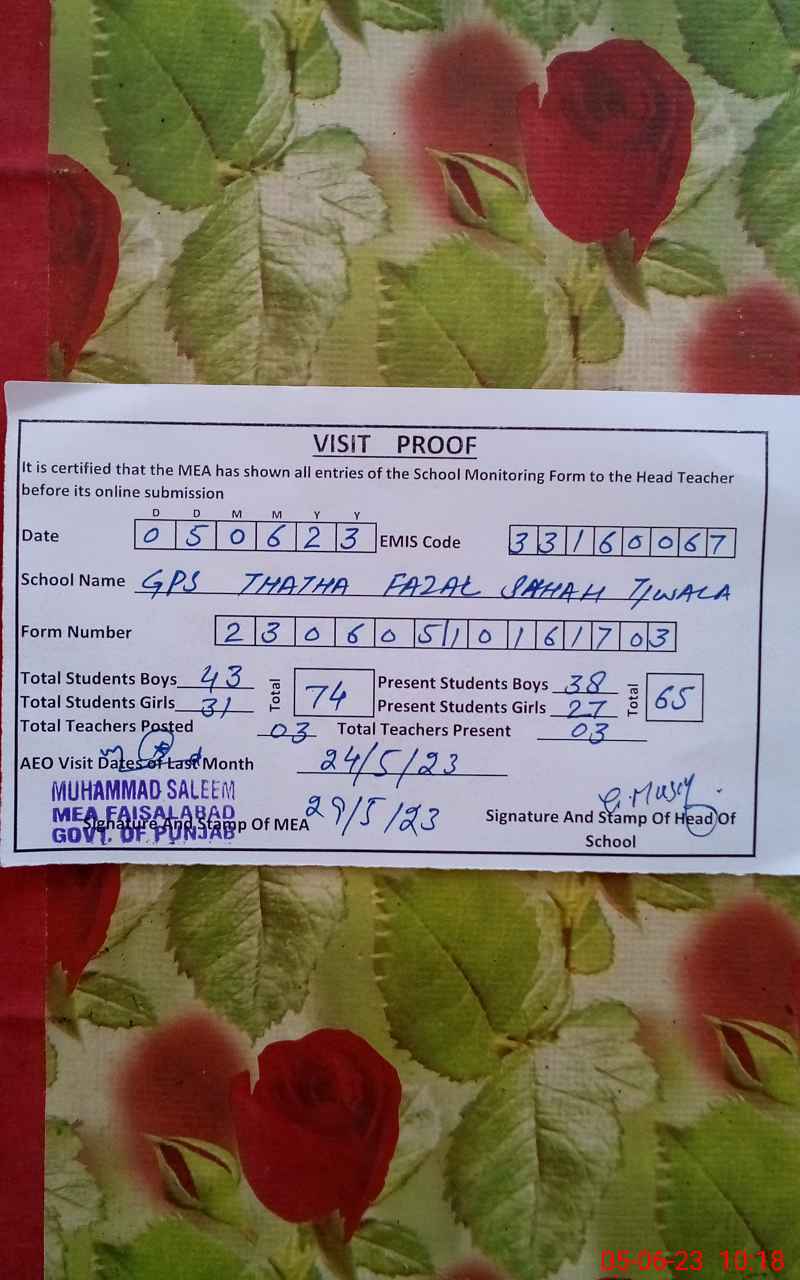 VISIT PROOF
It is certified that the MEA has shown all entries of the School Monitoring Form to the Head Teacher
before its online submission
D D M M Y Y
Date 0 5 0 6 2 3 EMIS Code 3 3 1 6 0 0 6 7
School Name GPS THATHA FAZAL
Form Number 2 3 0 6 0 5 1 0 1 6 1 7 0 3
Total Students Boys 43 Total 74 Present Students Boys 38 Total 65
Total Students Girls 31 Present Students Girls 27
Total Teachers Posted 03 Total Teachers Present 03
AEO Visit Dates of Last Month 24/5/23
MUHAMMAD SALEEM
MEA FAISALABAD 29/5/23
GOVT. OF PUNJAB
Signature And Stamp Of MEA Signature And Stamp Of Head Of
School
05-06-23 10:18